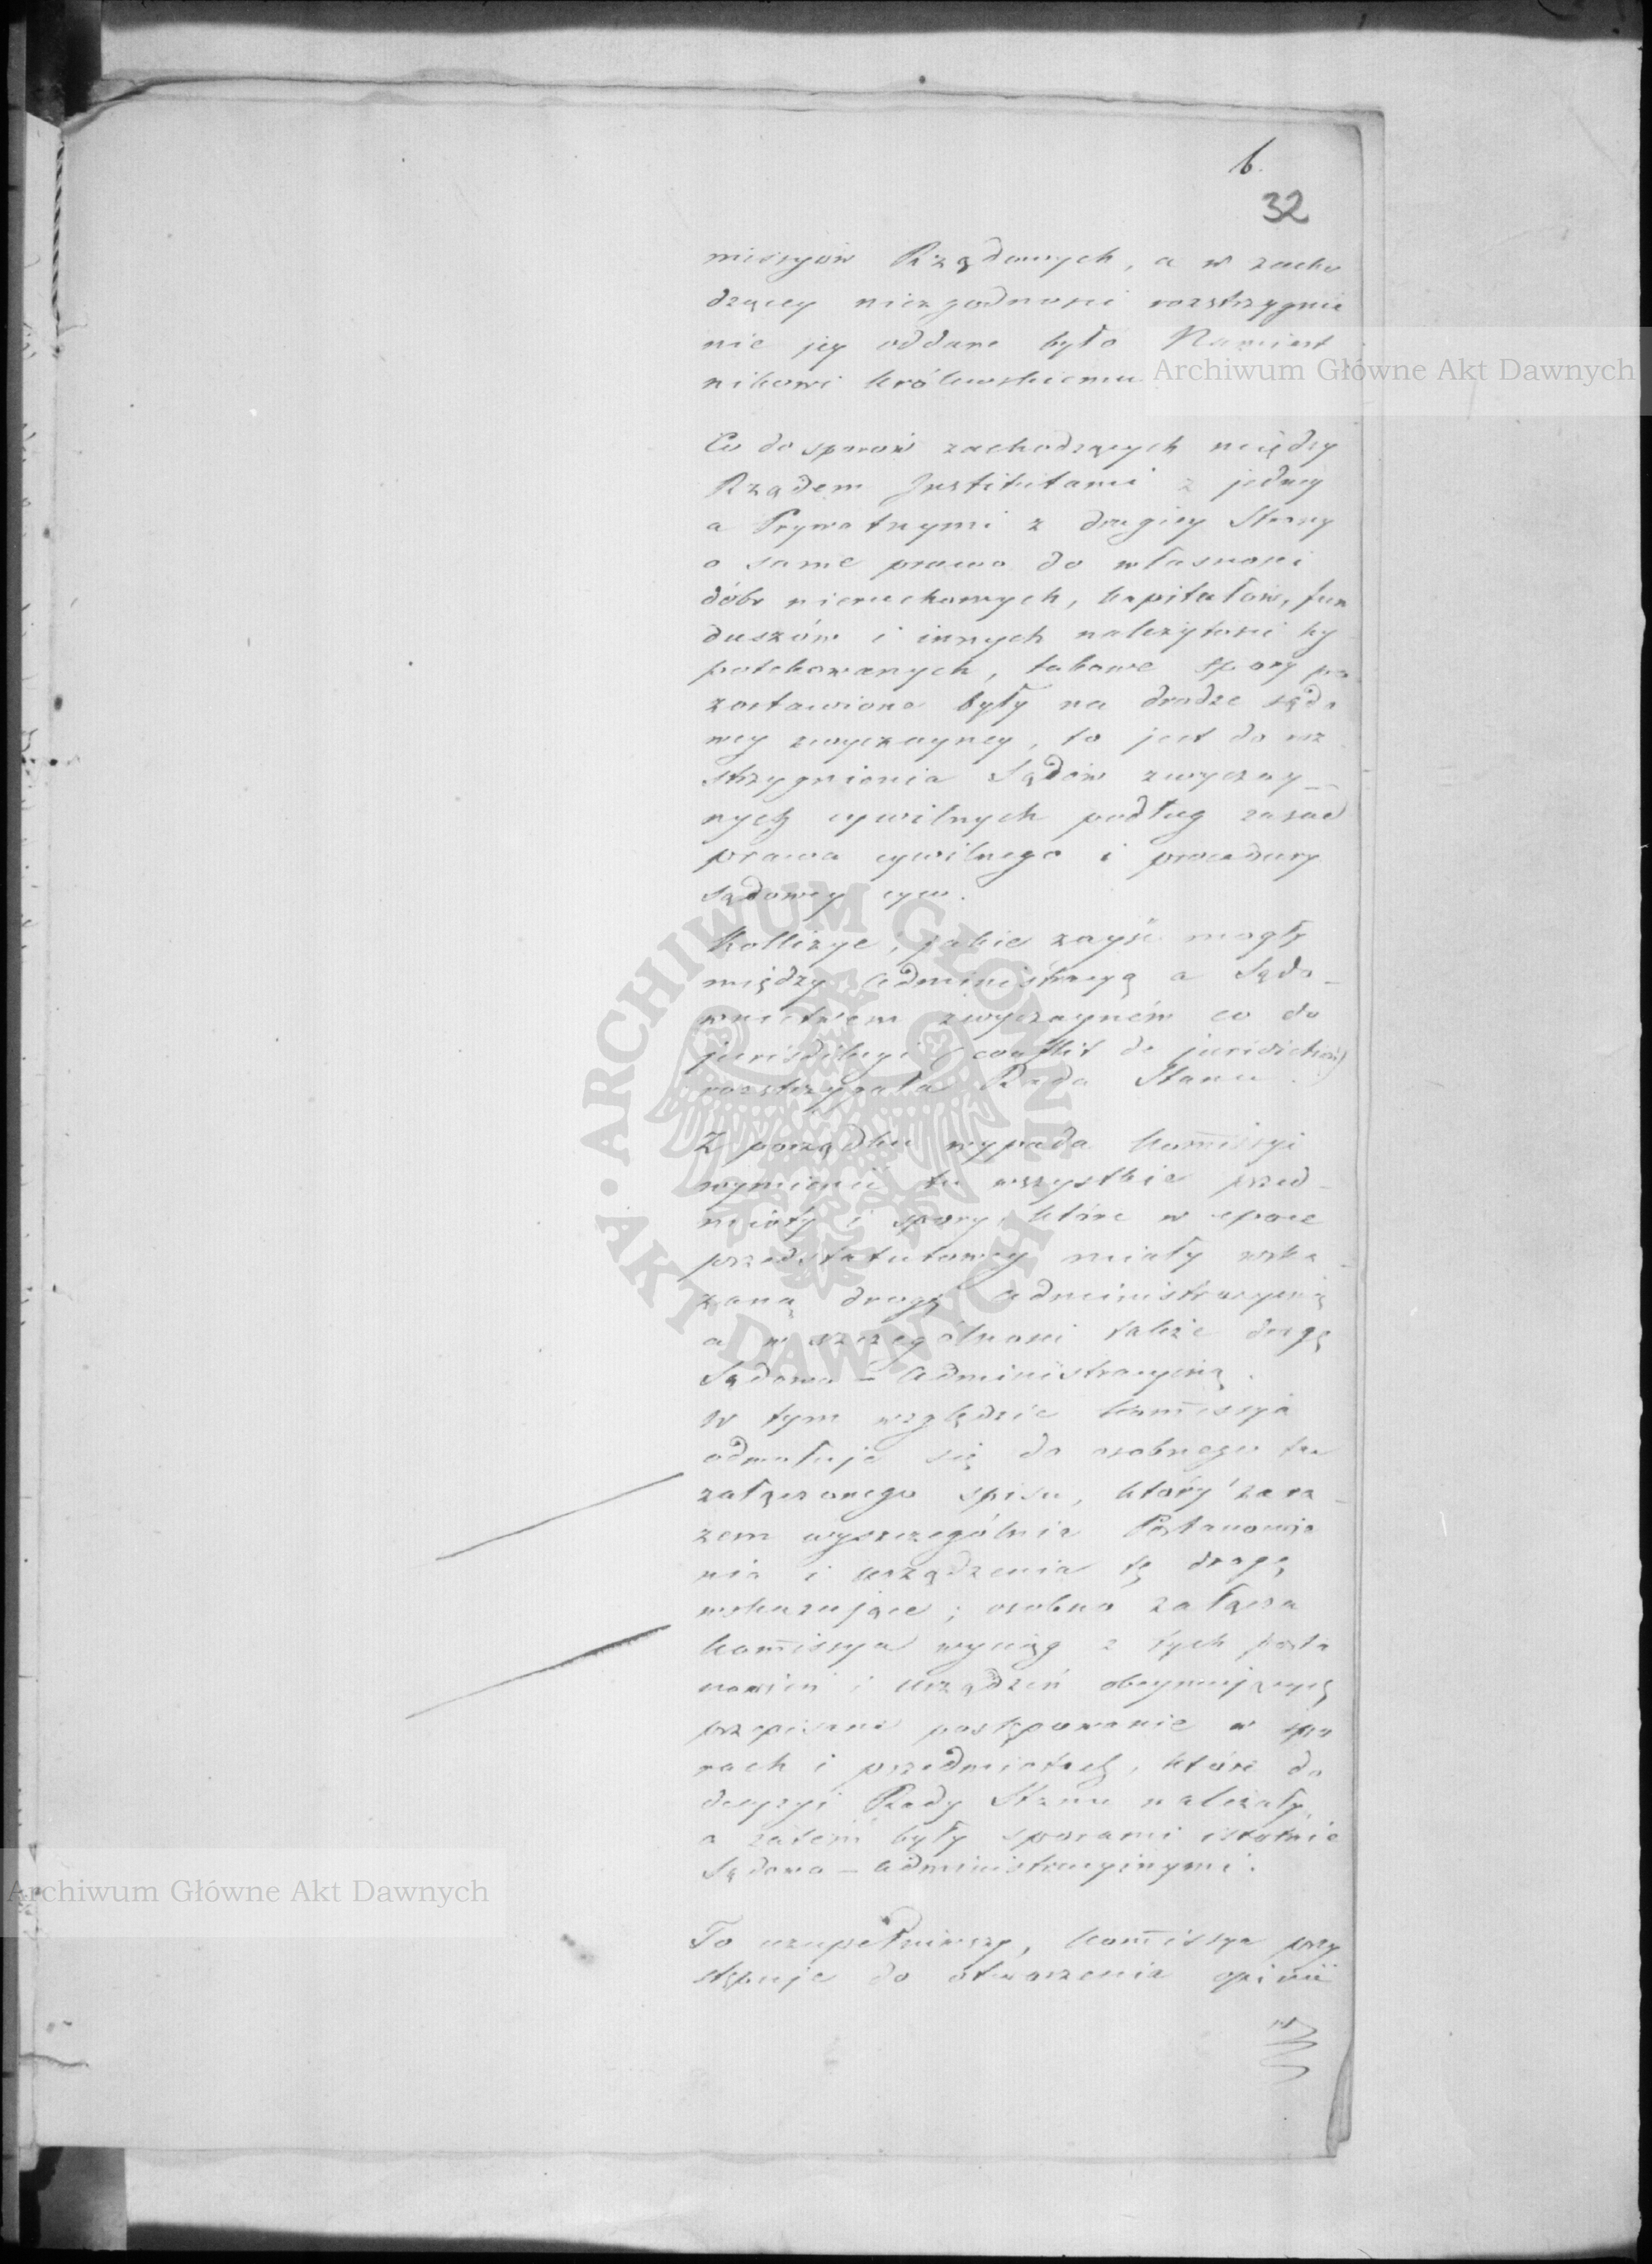 6.
32
missyów Rządowych, a w zacho
dzącey niezgodności rozstrzygnie
nie jey oddane było Namiest
nikowi Królewskiemu
Archiwum Główne Akt Dawnych
Co do sporów zachodzących między
Rządem Institutami z jedney
a Prywatnymi z drugiey Strony
o same prawo do własności
dóbr nieruchomych, kapitałów, fun
duszów i innych należytości hy
potekowanych, takowe spory po
zostawione były na drodze sądo
wey zwyczayney, to jest do roz
strzygnienia Sądów zwyczay_
nych cywilnych podług zasad
prawa cywilnego i procedury
sądowey cyw.
Kollizye, jakie zayść mogły
między Administracyą a Sądo_
wnictwem zwyczayném co do
jurisdikcyi (conflit de jurisdiction)
rozstrzygała Rada Stanu.
Z porządku wypada Kom̄issyi
wymienić tu wszystkie przed_
mioty i spory, które w epoce
przedstatutowey miały wska_
zaną drogę administracyiną
a w szczególności także drogę
Sądowo – Administracyiną.
W tym względzie Kom̄issya
odwołuje się do osobnego tu
załączonego spisu, który zara_
zem wyszczególnia Postanowie
nia i urządzenia tę drogę
wskazujące; osobno załącza
Kom̄issya wyciąg z tych posta
nowień i urządzeń obeymujących
przepisane postępowanie w spo
rach i przedmiotach, które do
decyzyi Rady Stanu należały,
a zatém były sporami istotnie
Sądowo – administracyinymi.
Archiwum Główne Akt Dawnych
To uzupełniwszy, Kom̄issya przy
stępuje do otworzenia opinii
ARCHIWUM GŁÓWNE • AKT DAWNYCH •